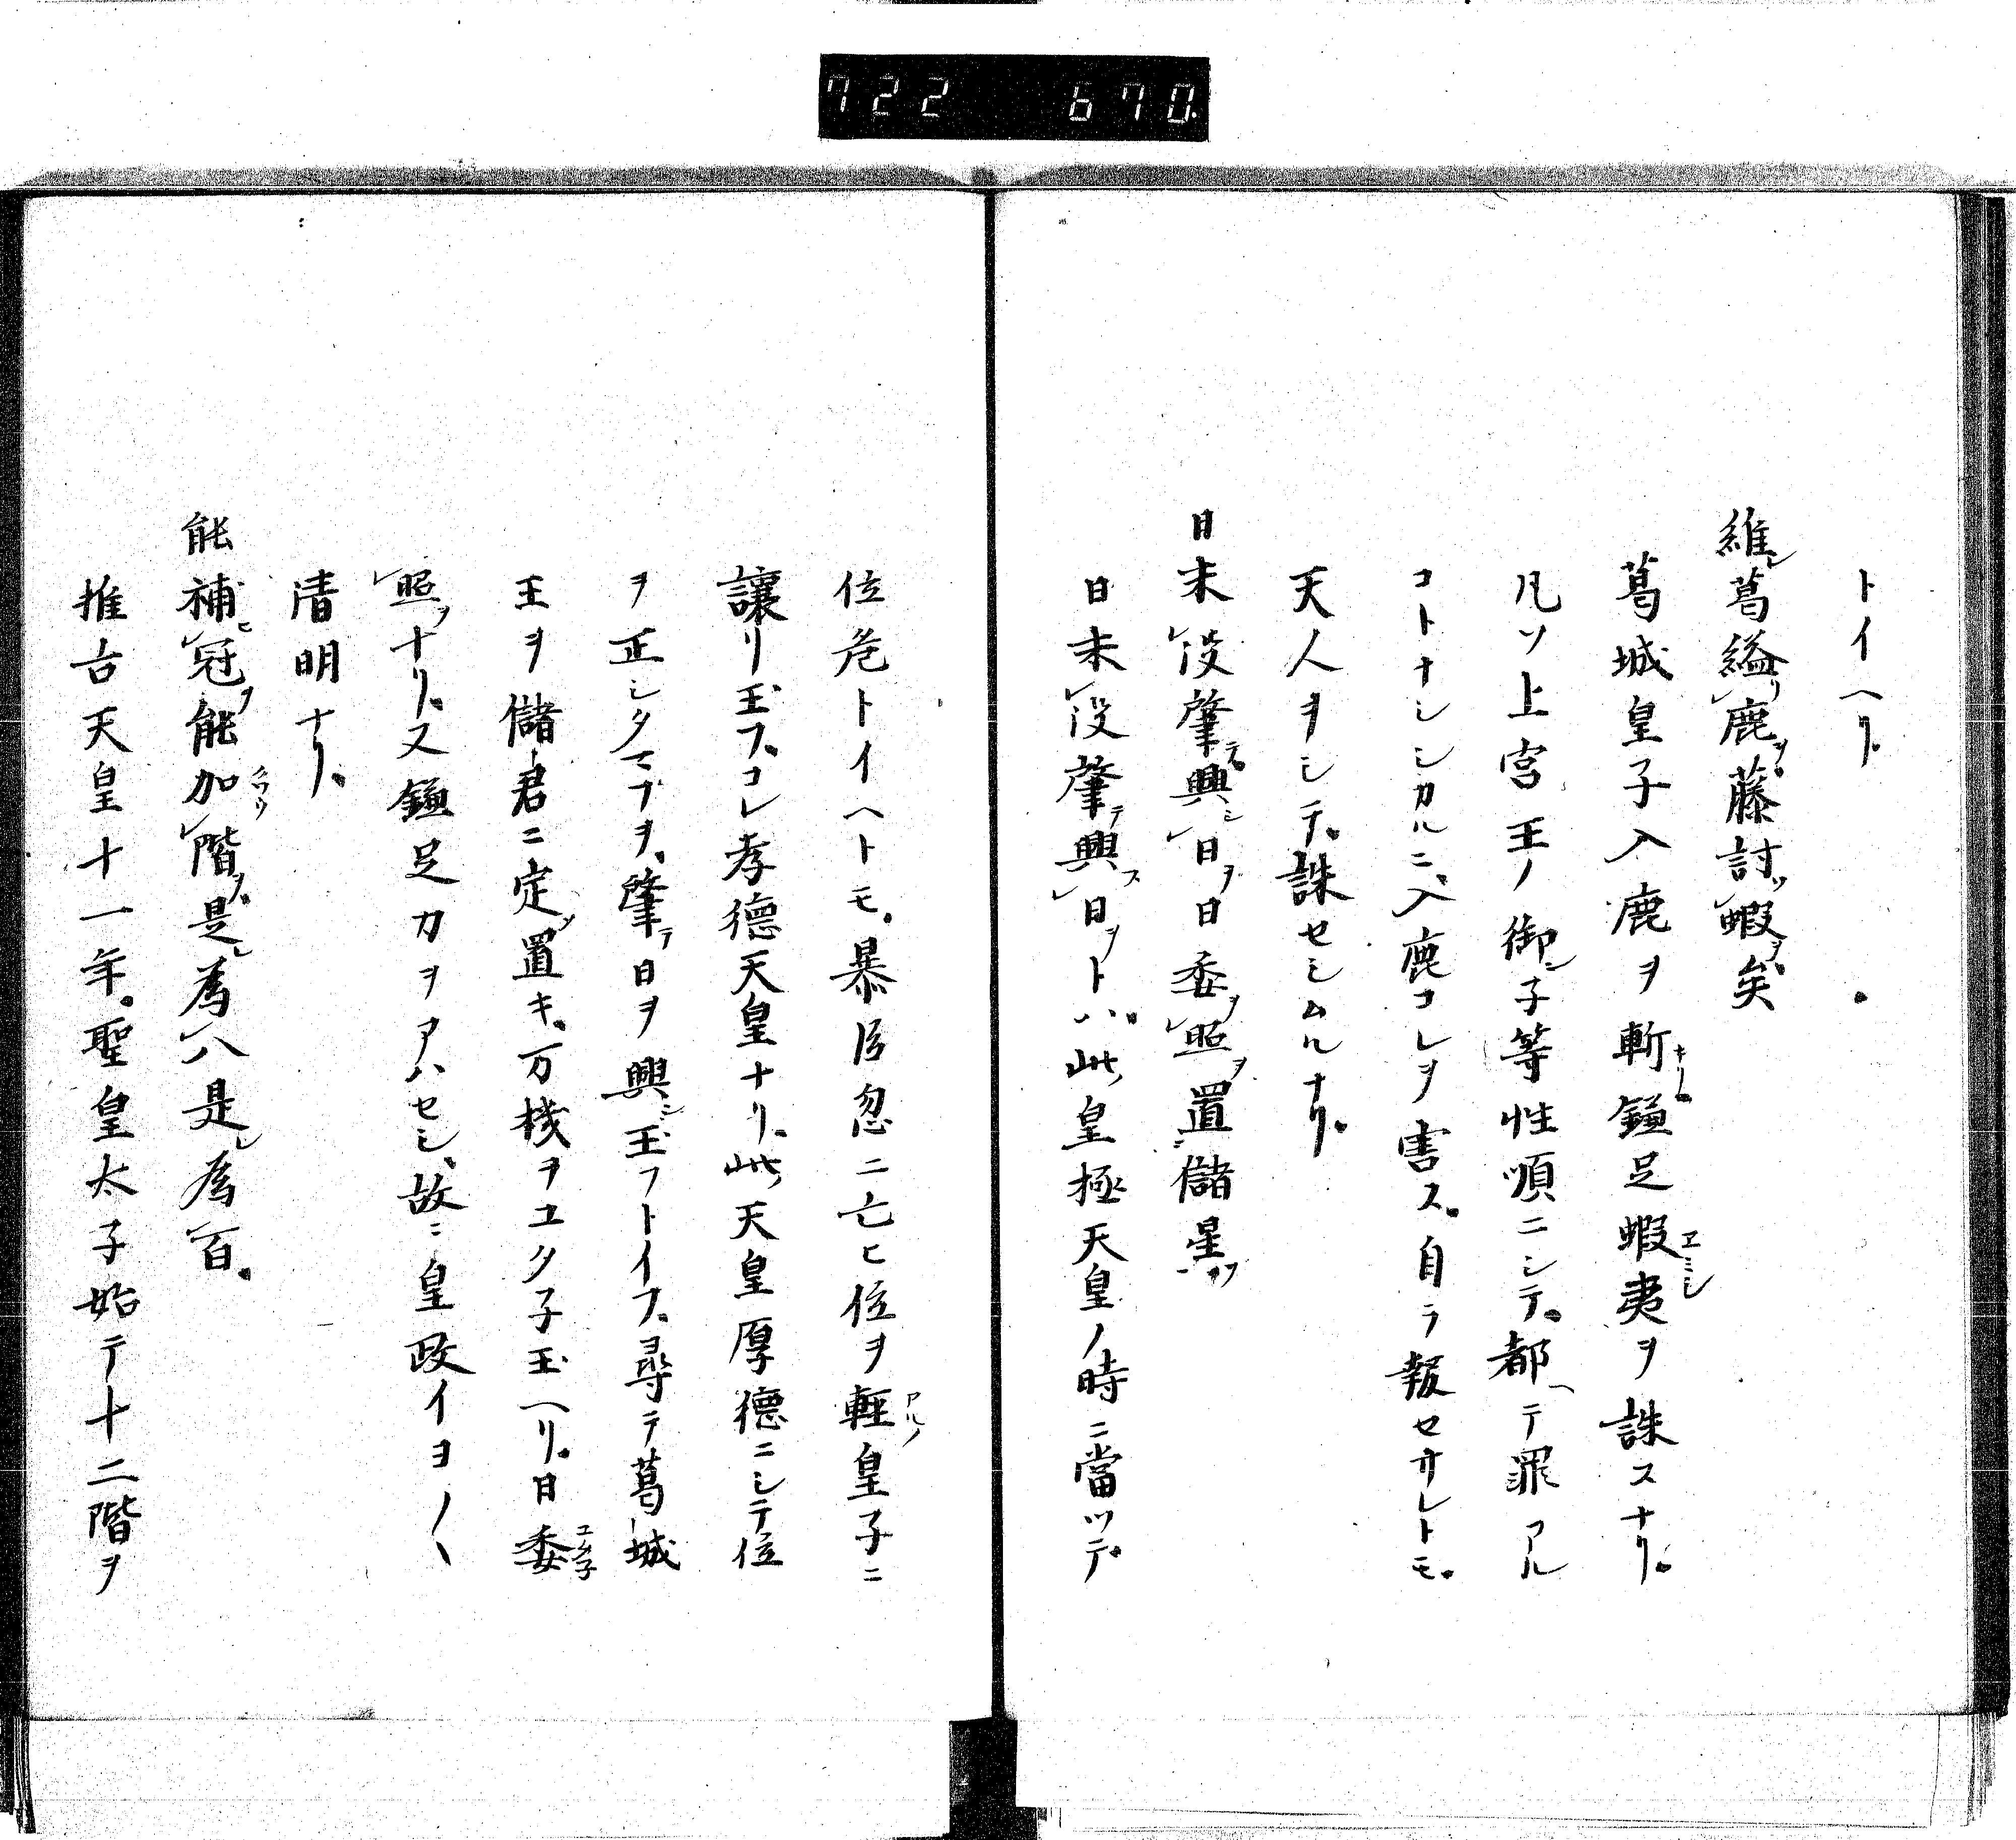 722 670.
トイヘリ。
維葛縊鹿藤討蝦矣
葛城皇子入鹿ヲ斬鎌足蝦夷ヲ誅スナリ。
凡ソ上宮王ノ御子等性順ニシテ。都テ罪アル
コトナシシカルニ、入鹿コレヲ害ス。自ラ報セサレトモ。
天人ヲシテ。誅セシムルナリ。
日未没肇興日日委照置儲星
日未没肇テ興ス日ヲトハ。此皇極天皇ノ時ニ當ツテ。
位危トイヘトモ。暴臣忽ニ亡ヒ位ヲ輕皇子ニ
讓リ玉フ。コレ孝德天皇ナリ。此天皇厚德ニシテ位
ヲ正シタマフヲ。肇テ日ヲ興シ玉フトイフ。尋テ葛城
王ヲ儲君ニ定置キ。万機ヲユタ子玉ヘリ。日委
照ナリ。又鎌足力ヲアハセシ、故ニ皇政イヨ〱
清明ナリ。
能補冠能加階是為八是為百。
推古天皇十一年。聖皇太子始テ十二階ヲ